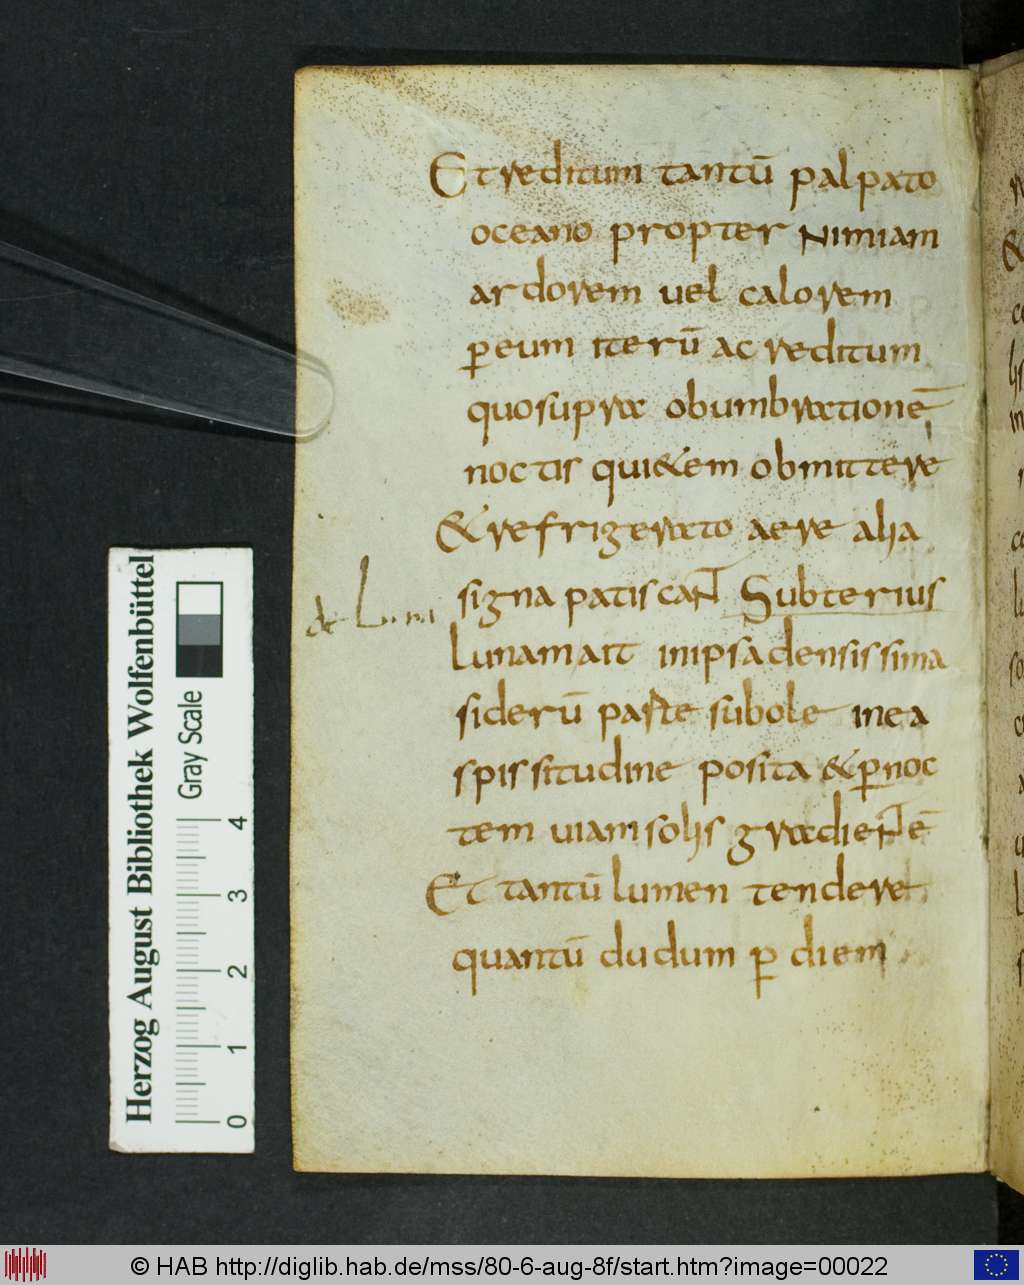 Et reditum tantū palpato
oceano propter Nimiam
ardorem uel calorem
ꝑeum iterū ac reditum
quosupra obumbrationē
noctis qui&em obmittere
& refrigerato aere alia
signa patiscanT Subterius
de Luna
Lunam ait inipsa densissima
siderū paste subole inea
spissitudine posita & ꝑnoc
tem uiam solis gradieNTē
Et tantū lumen tendere
quantū dudum ꝑ diem
Herzog August Bibliothek Wolfenbüttel
Gray Scale
0 1 2 3 4
© HAB http://diglib.hab.de/mss/80-6-aug-8f/start.htm?image=00022